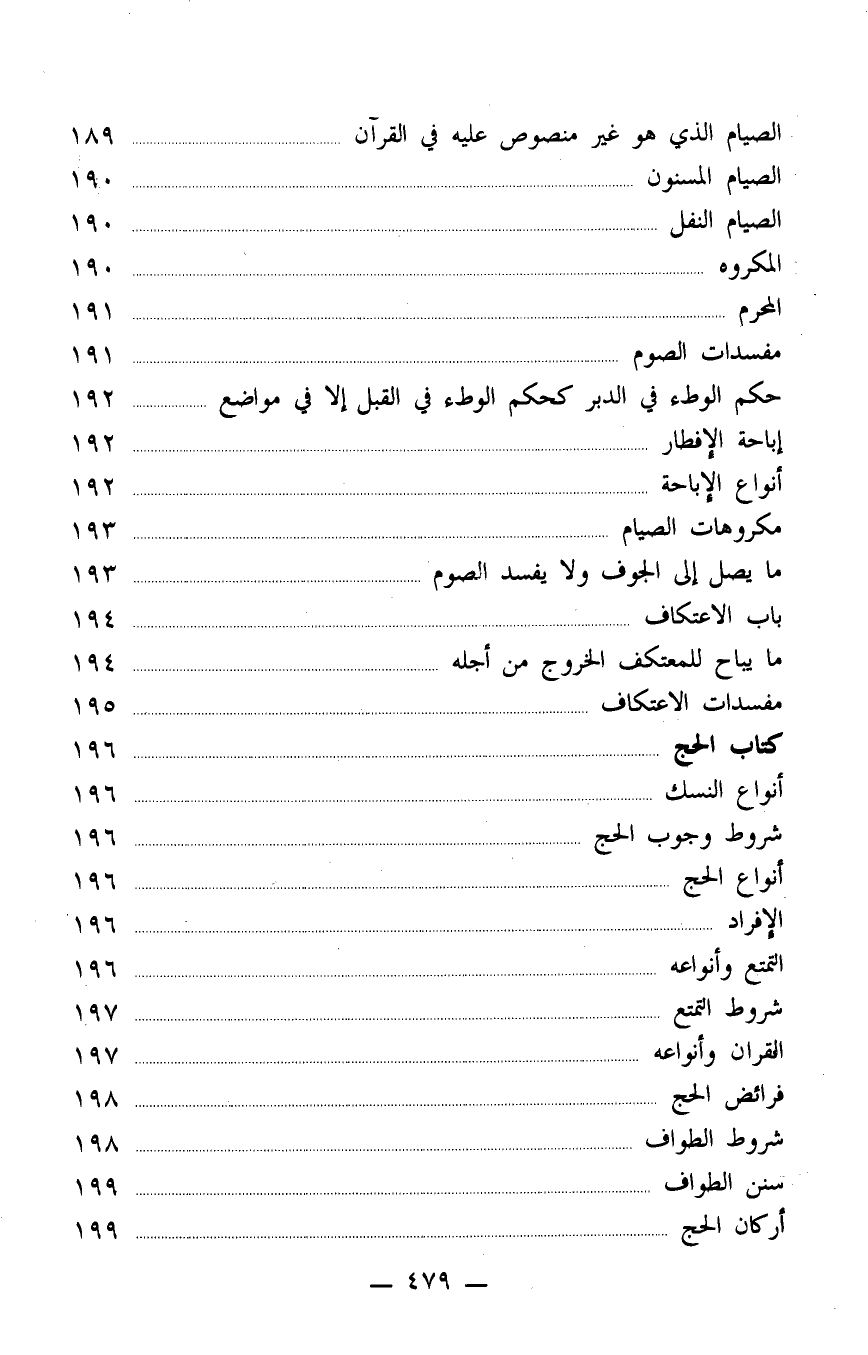 الصيام الذي هو غير منصوص عليه في القرآن ١٨٩
الصيام المسنون ١٩٠
الصيام النفل ١٩٠
المكروه ١٩٠
المحرم ١٩١
مفسدات الصوم ١٩١
حكم الوطء في الدبر كحكم الوطء في القبل إلا في مواضع ١٩٢
إباحة الإفطار ١٩٢
أنواع الإباحة ١٩٢
مكروهات الصيام ١٩٣
ما يصل إلى الجوف ولا يفسد الصوم ١٩٣
باب الاعتكاف ١٩٤
ما يباح للمعتكف الخروج من أجله ١٩٤
مفسدات الاعتكاف ١٩٥
كتاب الحج ١٩٦
أنواع النسك ١٩٦
شروط وجوب الحج ١٩٦
أنواع الحج ١٩٦
الإفراد ١٩٦
التمتع وأنواعه ١٩٦
شروط التمتع ١٩٧
القران وأنواعه ١٩٧
فرائض الحج ١٩٨
شروط الطواف ١٩٨
سنن الطواف ١٩٩
أركان الحج ١٩٩
— ٤٧٩ —